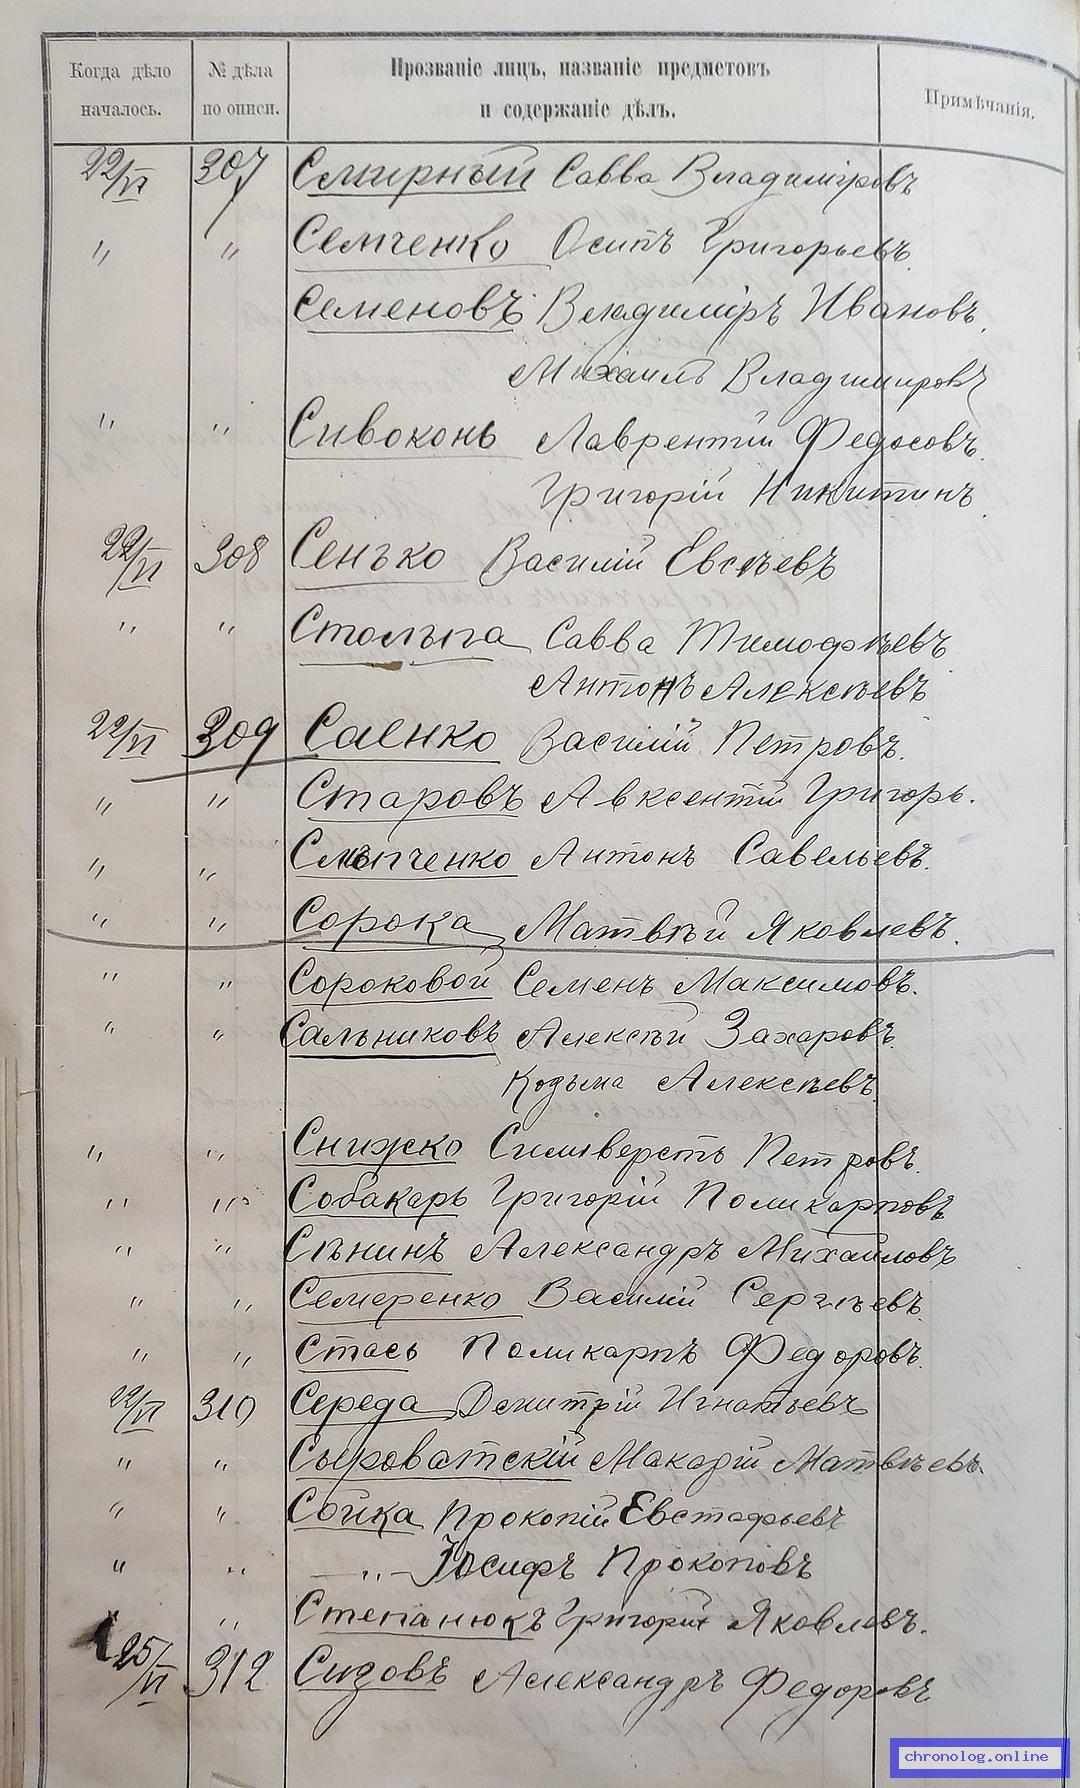 Когда дѣло № дѣла Прозваніе лицъ, названіе предметовъ Примѣчанія.
началось. по описи. и содержаніе дѣлъ.
22/VI 307 Смирный Савва Владиміровъ
" " Семченко Осипъ Григорьевъ.
Семеновъ Владиміръ Ивановъ.
Михаилъ Владимировъ
" " Сивоконь Лаврентій Федосовъ.
Григорій Никитинъ.
22/VI 308 Сенько Василій Евсѣевъ
" " Савва Тимофѣевъ
Антонъ Алексѣевъ
22/VI 309 Саенко Василій Петровъ.
" " Старовъ Авксентій Григорь.
" " Слѣпченко Антонъ Савельевъ.
" " Сорока Матвѣй Яковлевъ.
" " Сороковой Семенъ Максимовъ.
" " Сальниковъ Алексѣй Захаровъ.
Козьма Алексѣевъ
" " Снижко Силиверстъ Петровъ.
" " Собакарь Григорій Поликарповъ
" " Сѣнинъ Александръ Михайловъ
" " Семеренко Василій Сергѣевъ.
" " Стась Поликарпъ Федоровъ.
22/VI 310 Середа Дмитрій Игнатьевъ
" " Сыроватскій Макарій Матвѣевъ.
" " Сойка Прокопій Евстафьевъ
" " — " — Іосифъ Прокоповъ
" " Степанюкъ Григорій Яковлевъ.
25/VI 312 Сизовъ Александръ Федоровъ
chronolog.online